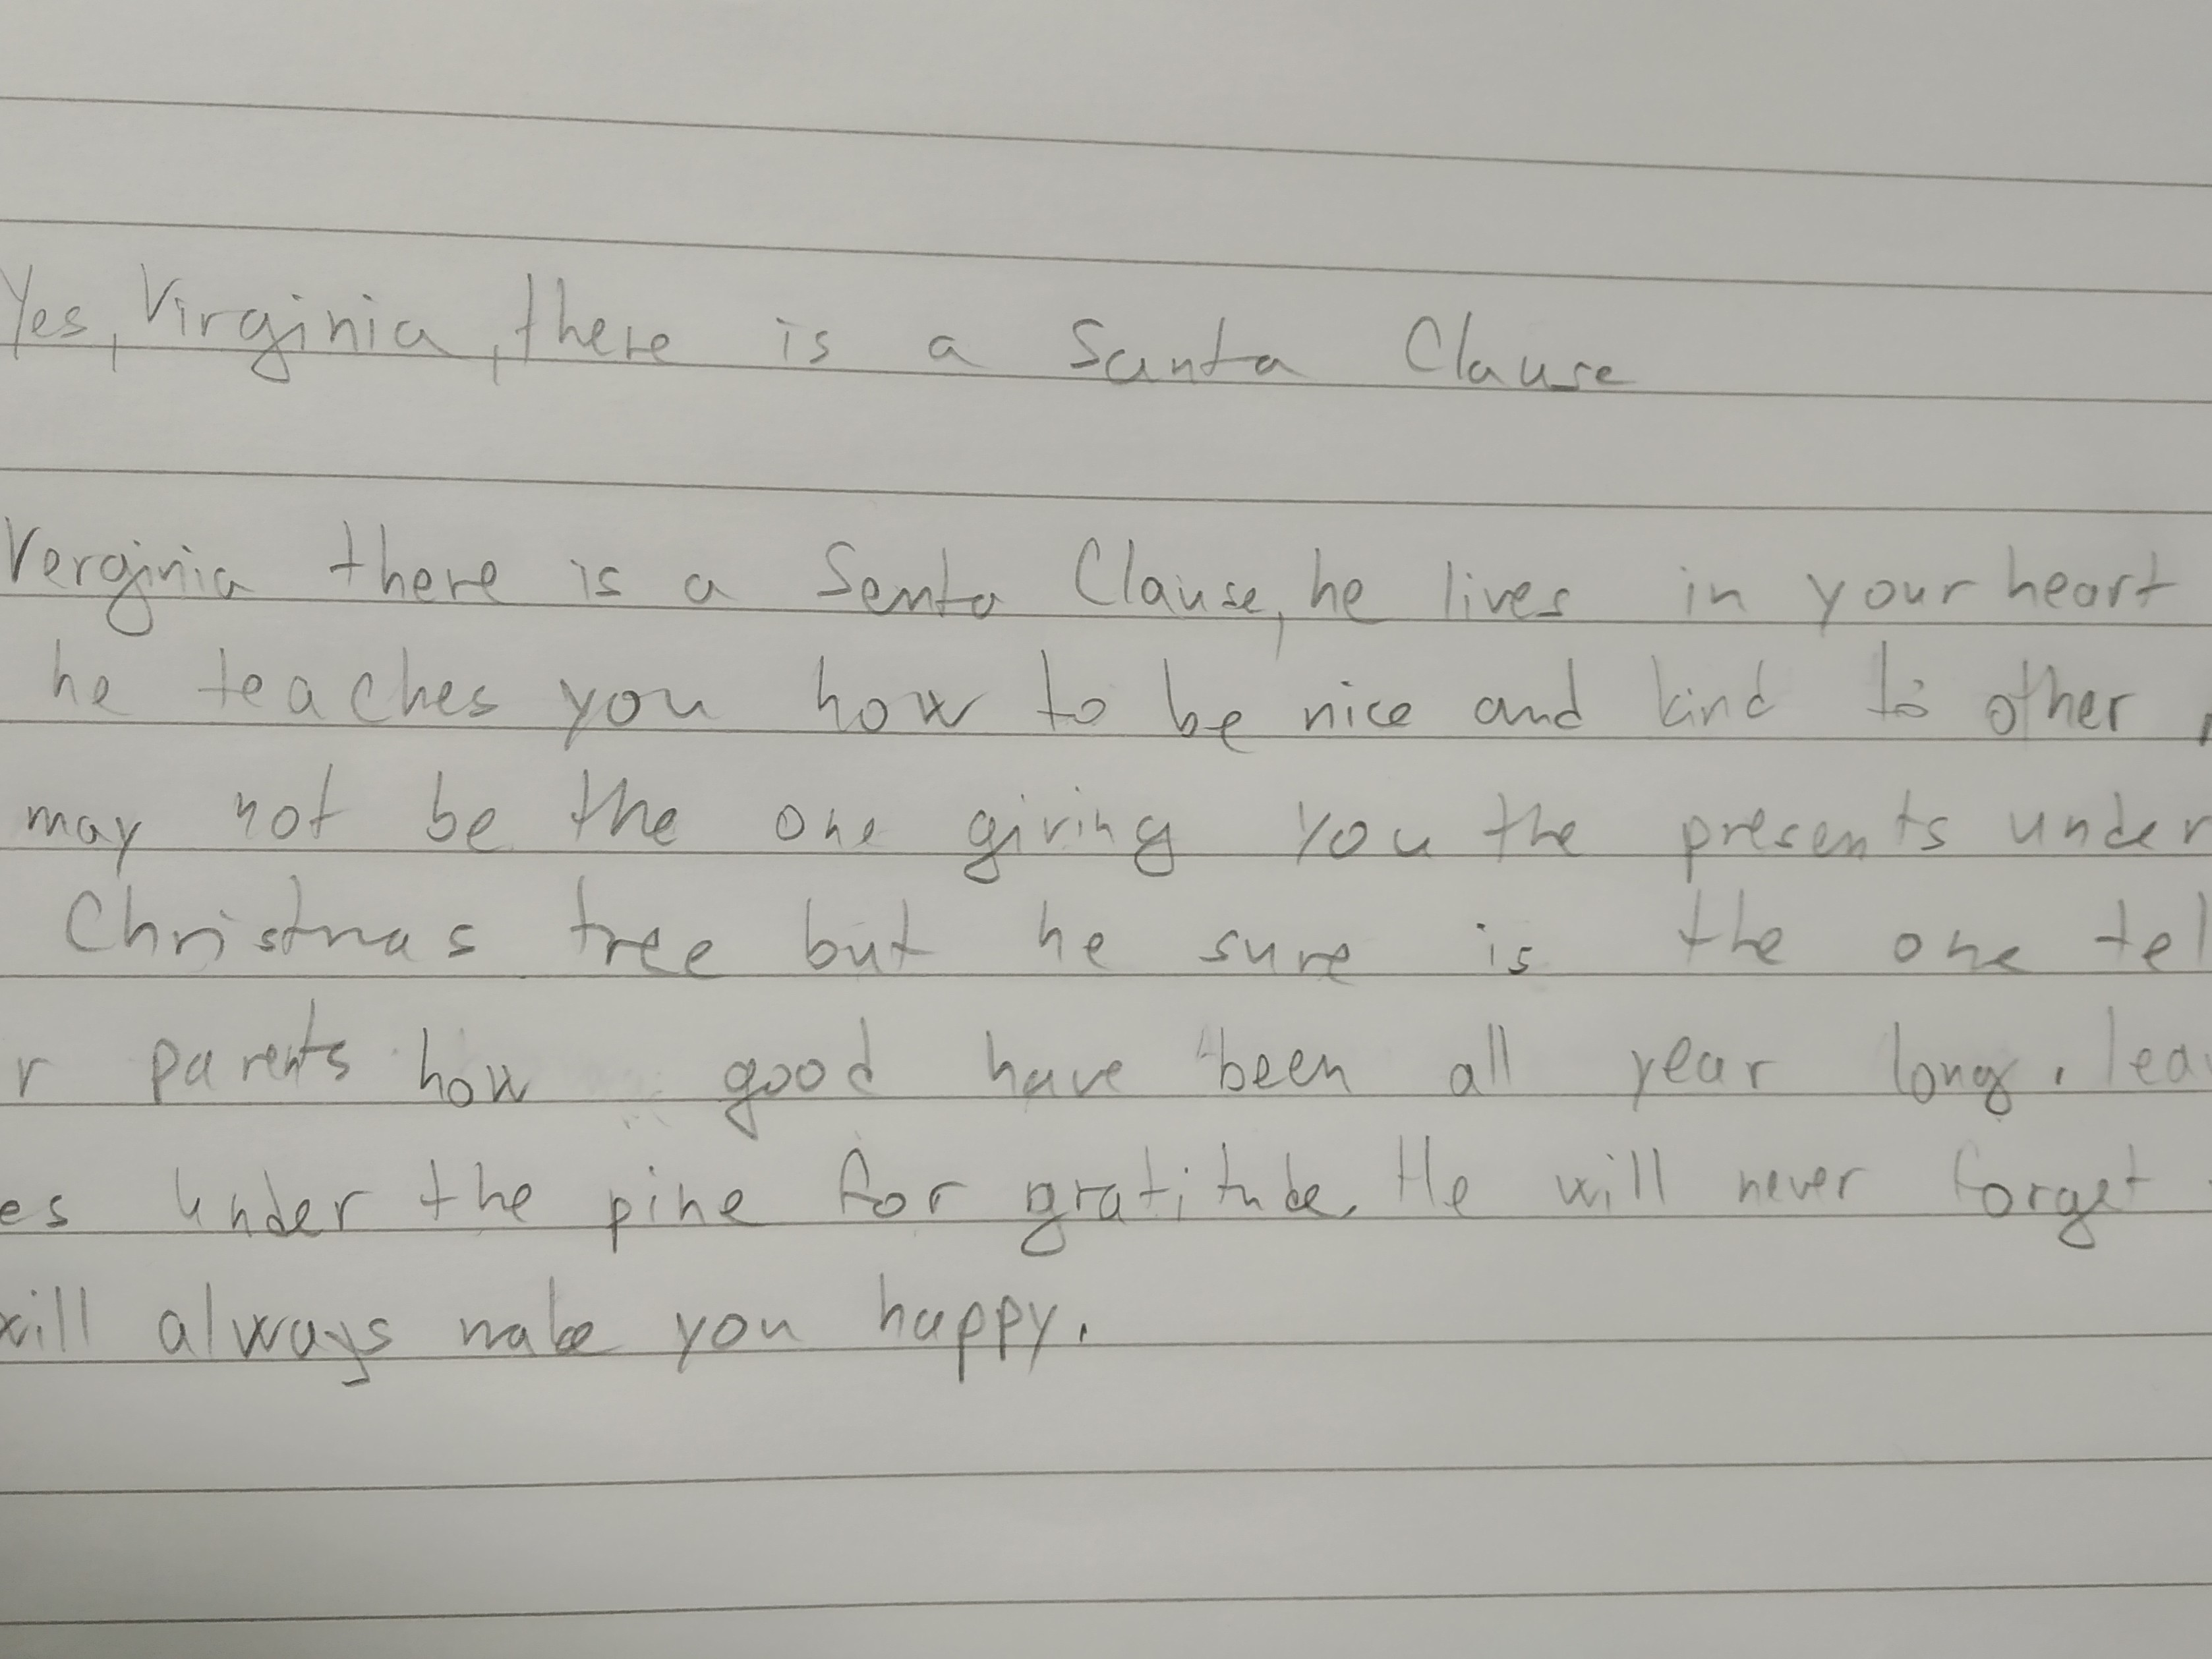 Yes, Virginia, there is a Santa Clause
Verginia there is a Senta Clause, he lives in your heart
he teaches you how to be nice and kind to other,
may not be the one giving you the presents under
Christmas tree but he sure is the one tel
r parents how good have been all year long, lea
es under the pine for gratitude. He will never forget
will always make you happy.